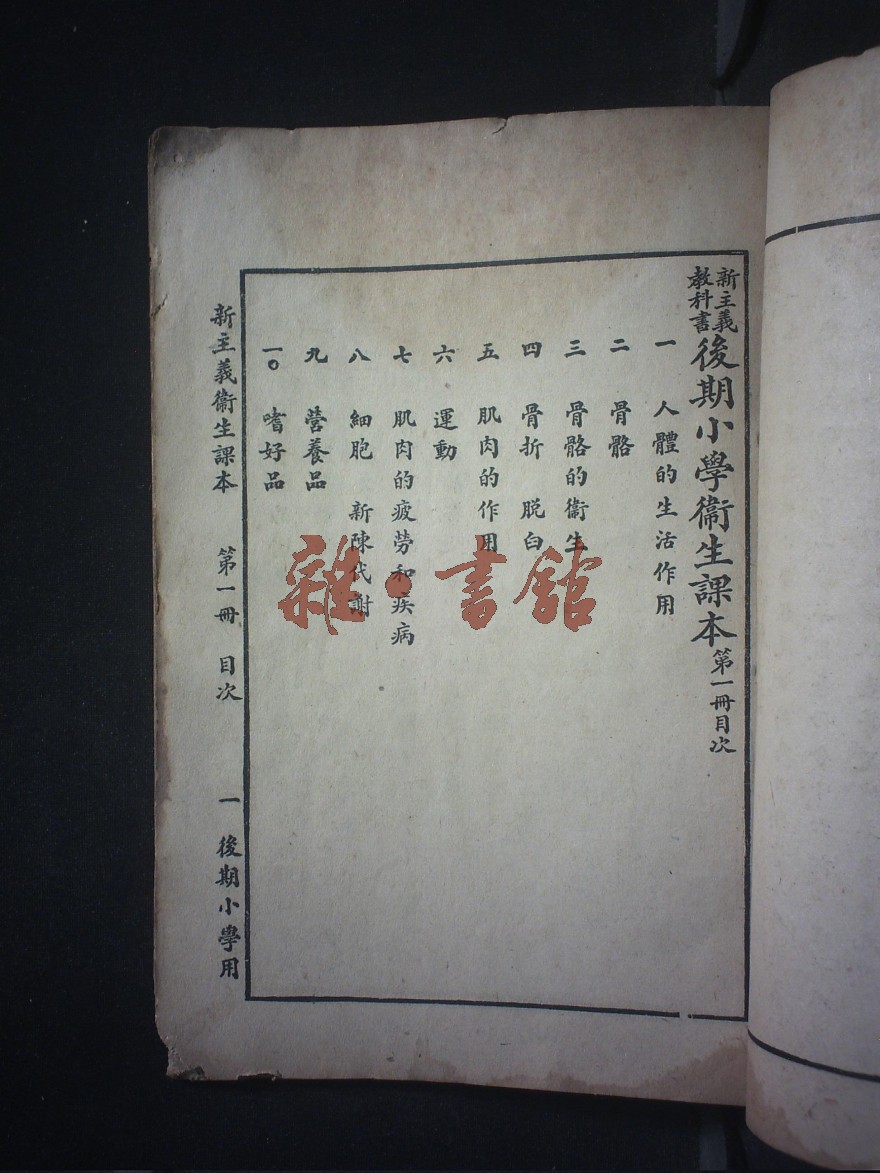 新主義教科書 後期小學衞生課本 第一冊目次
一 人體的生活作用
二 骨骼
三 骨骼的衞生
四 骨折 脫臼
五 肌肉的作用
六 運動
七 肌肉的疲勞和疾病
八 細胞 新陳代謝
九 營養品
一〇 嗜好品
新主義衞生課本 第一冊 目次 一 後期小學用
雜·書館